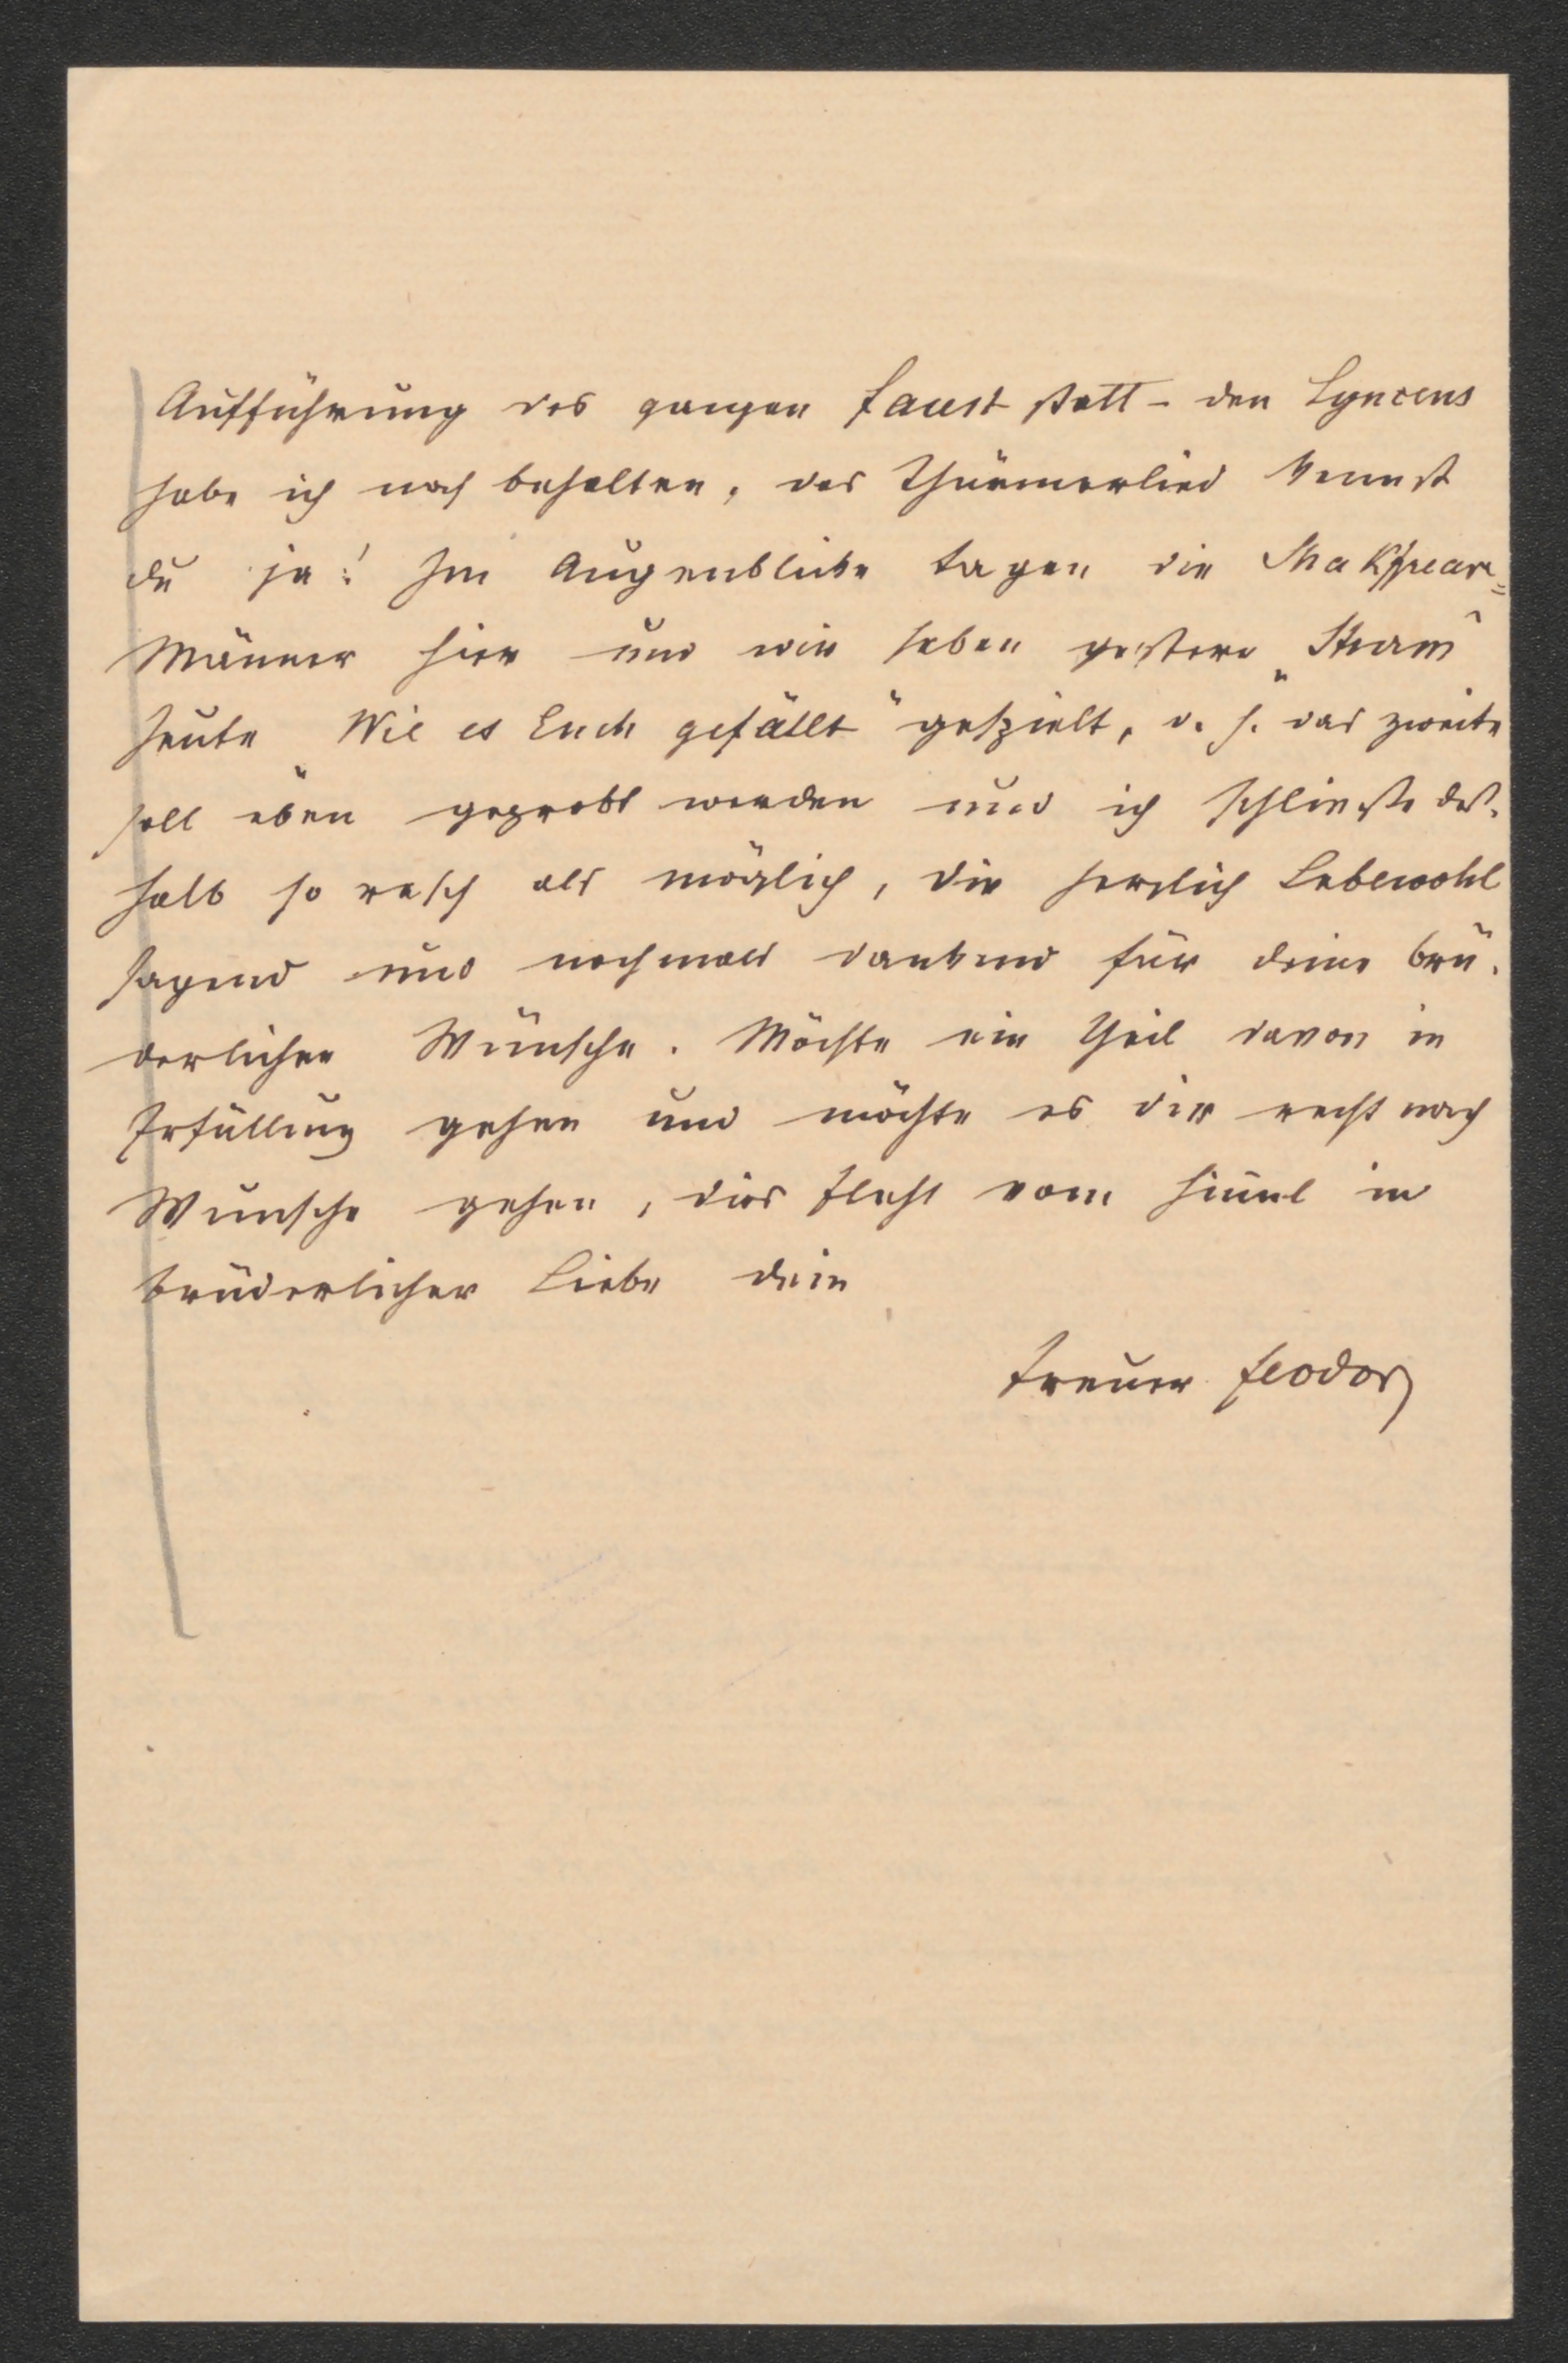 Aufführung des ganzen Faust statt - den Lynceus
habe ich noch behalten, das Thürmerlied kennst
du ja! Im Augenblicke tagen die Shakspeare=
Männer hier und wir haben gestern „Sturm“
heute „Wie es Euch gefällt“ gespielt, d. h. das zweite
soll eben geprobt werden und ich schließe des-
halb so rasch als möglich, dir herzlich Lebewohl
sagend und nochmals dankend für deine brü-
derlichen Wünsche. Möchte ein Theil davon in
Erfüllung gehen und möchte es dir recht nach
Wunsche gehen, dies fleht vom Himmel in
brüderlicher Liebe dein
treuer Feodor